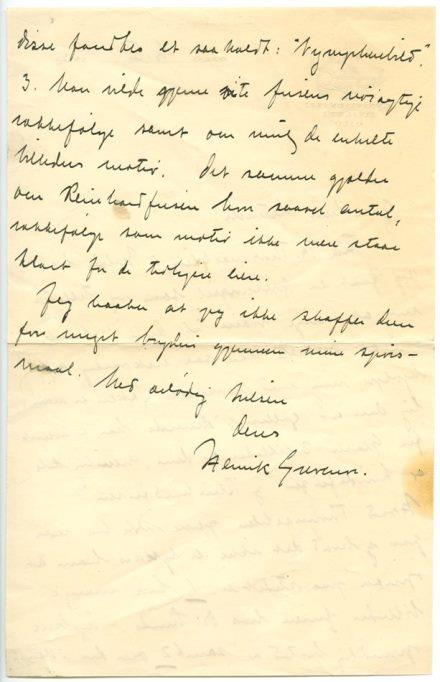 disse fandtes et saakaldt: "Nymphenbild".
3. Man vilde gjerne vite frisens nøiagtige
rækkefølge samt om mulig de enkelte
billeders motiv. Det samme gjælder
om Reinhardfrisen hvor saavel antal,
rækkefølge som motiv ikke mere staar
klart for de tidligere eiere.
Jeg haaber at jeg ikke skaffer dem
for meget bryderi gjennem mine spørs-
maal. Med ærbødig hilsen
Deres